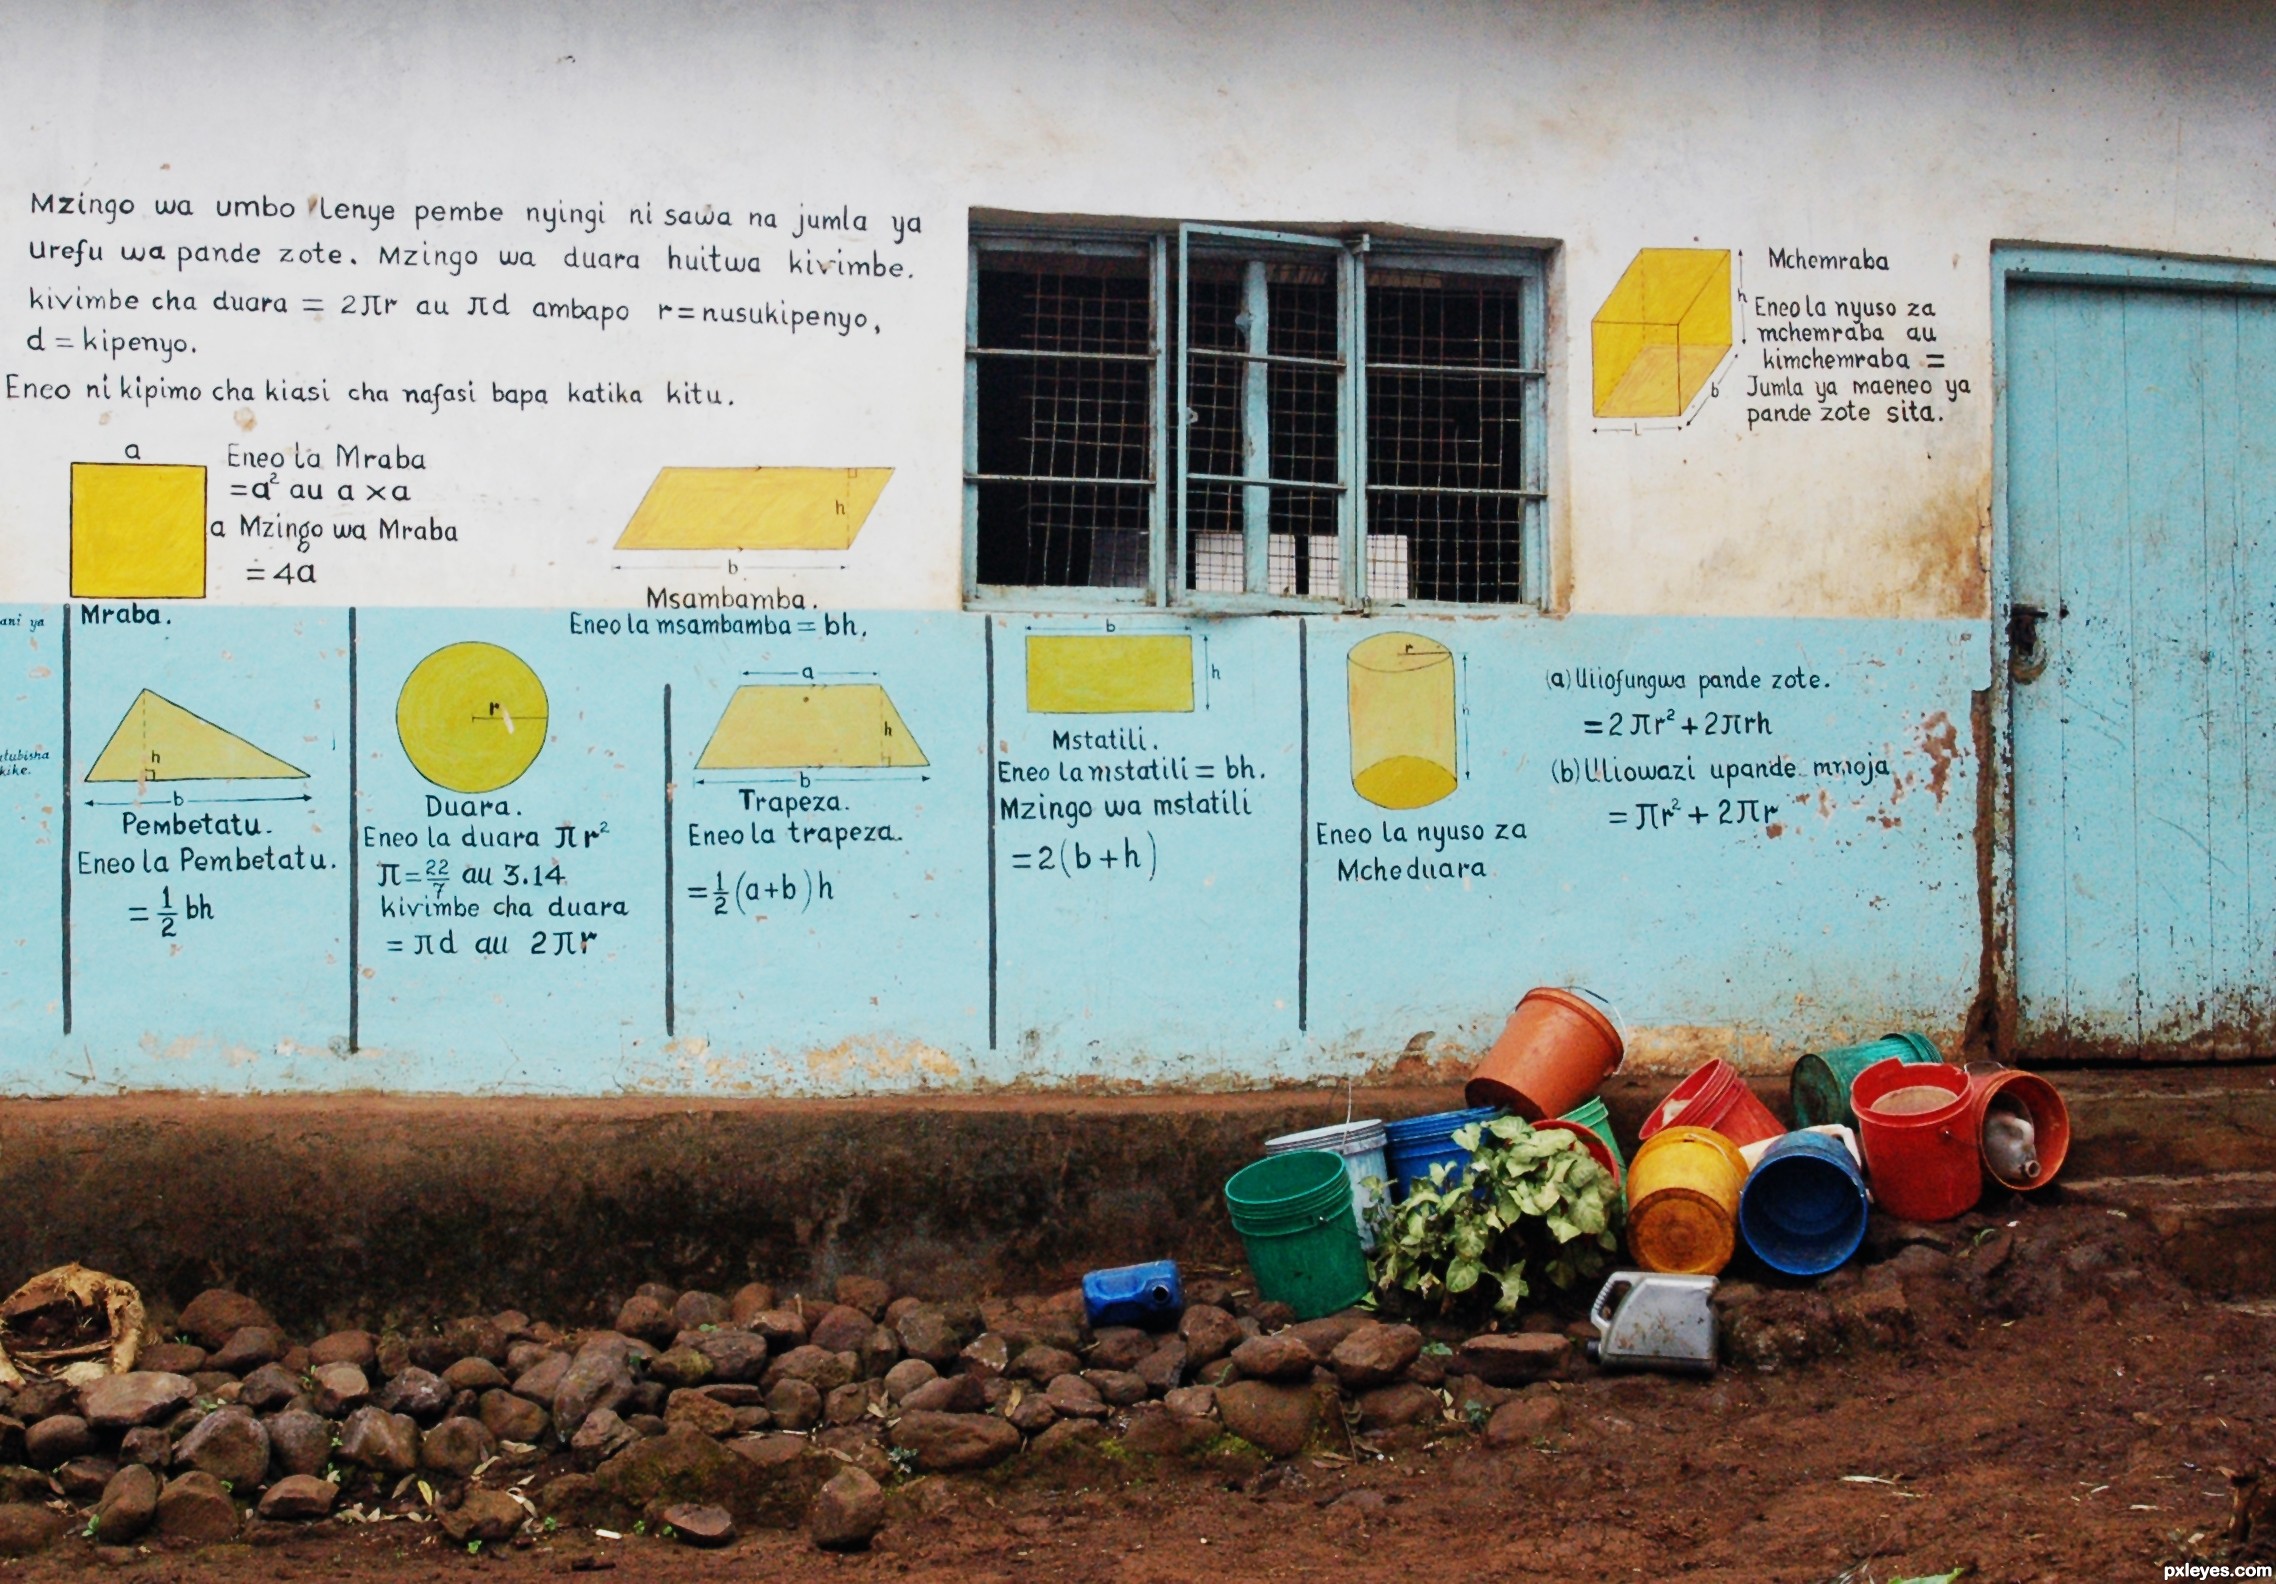 Mzingo wa umbo lenye pembe nyingi ni sawa na jumla ya
urefu wa pande zote. Mzingo wa duara huitwa kivimbe.
kivimbe cha duara = 2πr au πd ambapo r=nusukipenyo,
d = kipenyo.
Eneo ni kipimo cha kiasi cha nafasi bapa katika kitu.
a
Eneo la Mraba
=a² au a x a
a Mzingo wa Mraba
= 4a
Mraba.
h
b
Msambamba.
Eneo la msambamba = bh.
Mchemraba
h
b
L
Eneo la nyuso za
mchemraba au
kimchemraba =
Jumla ya maeneo ya
pande zote sita.
ani ya
tubisha
kike.
h
b
Pembetatu.
Eneo la Pembetatu.
= 1/2 bh
r
Duara.
Eneo la duara πr²
π=22/7 au 3.14
kivimbe cha duara
= πd au 2πr
a
h
b
Trapeza.
Eneo la trapeza.
=1/2(a+b)h
b
h
Mstatili.
Eneo la mstatili = bh.
Mzingo wa mstatili
=2(b+h)
r
h
Eneo la nyuso za
Mcheduara
(a) Uliofungwa pande zote.
=2πr²+2πrh
(b) Uliowazi upande mmoja
=πr²+2πr
pxleyes.com